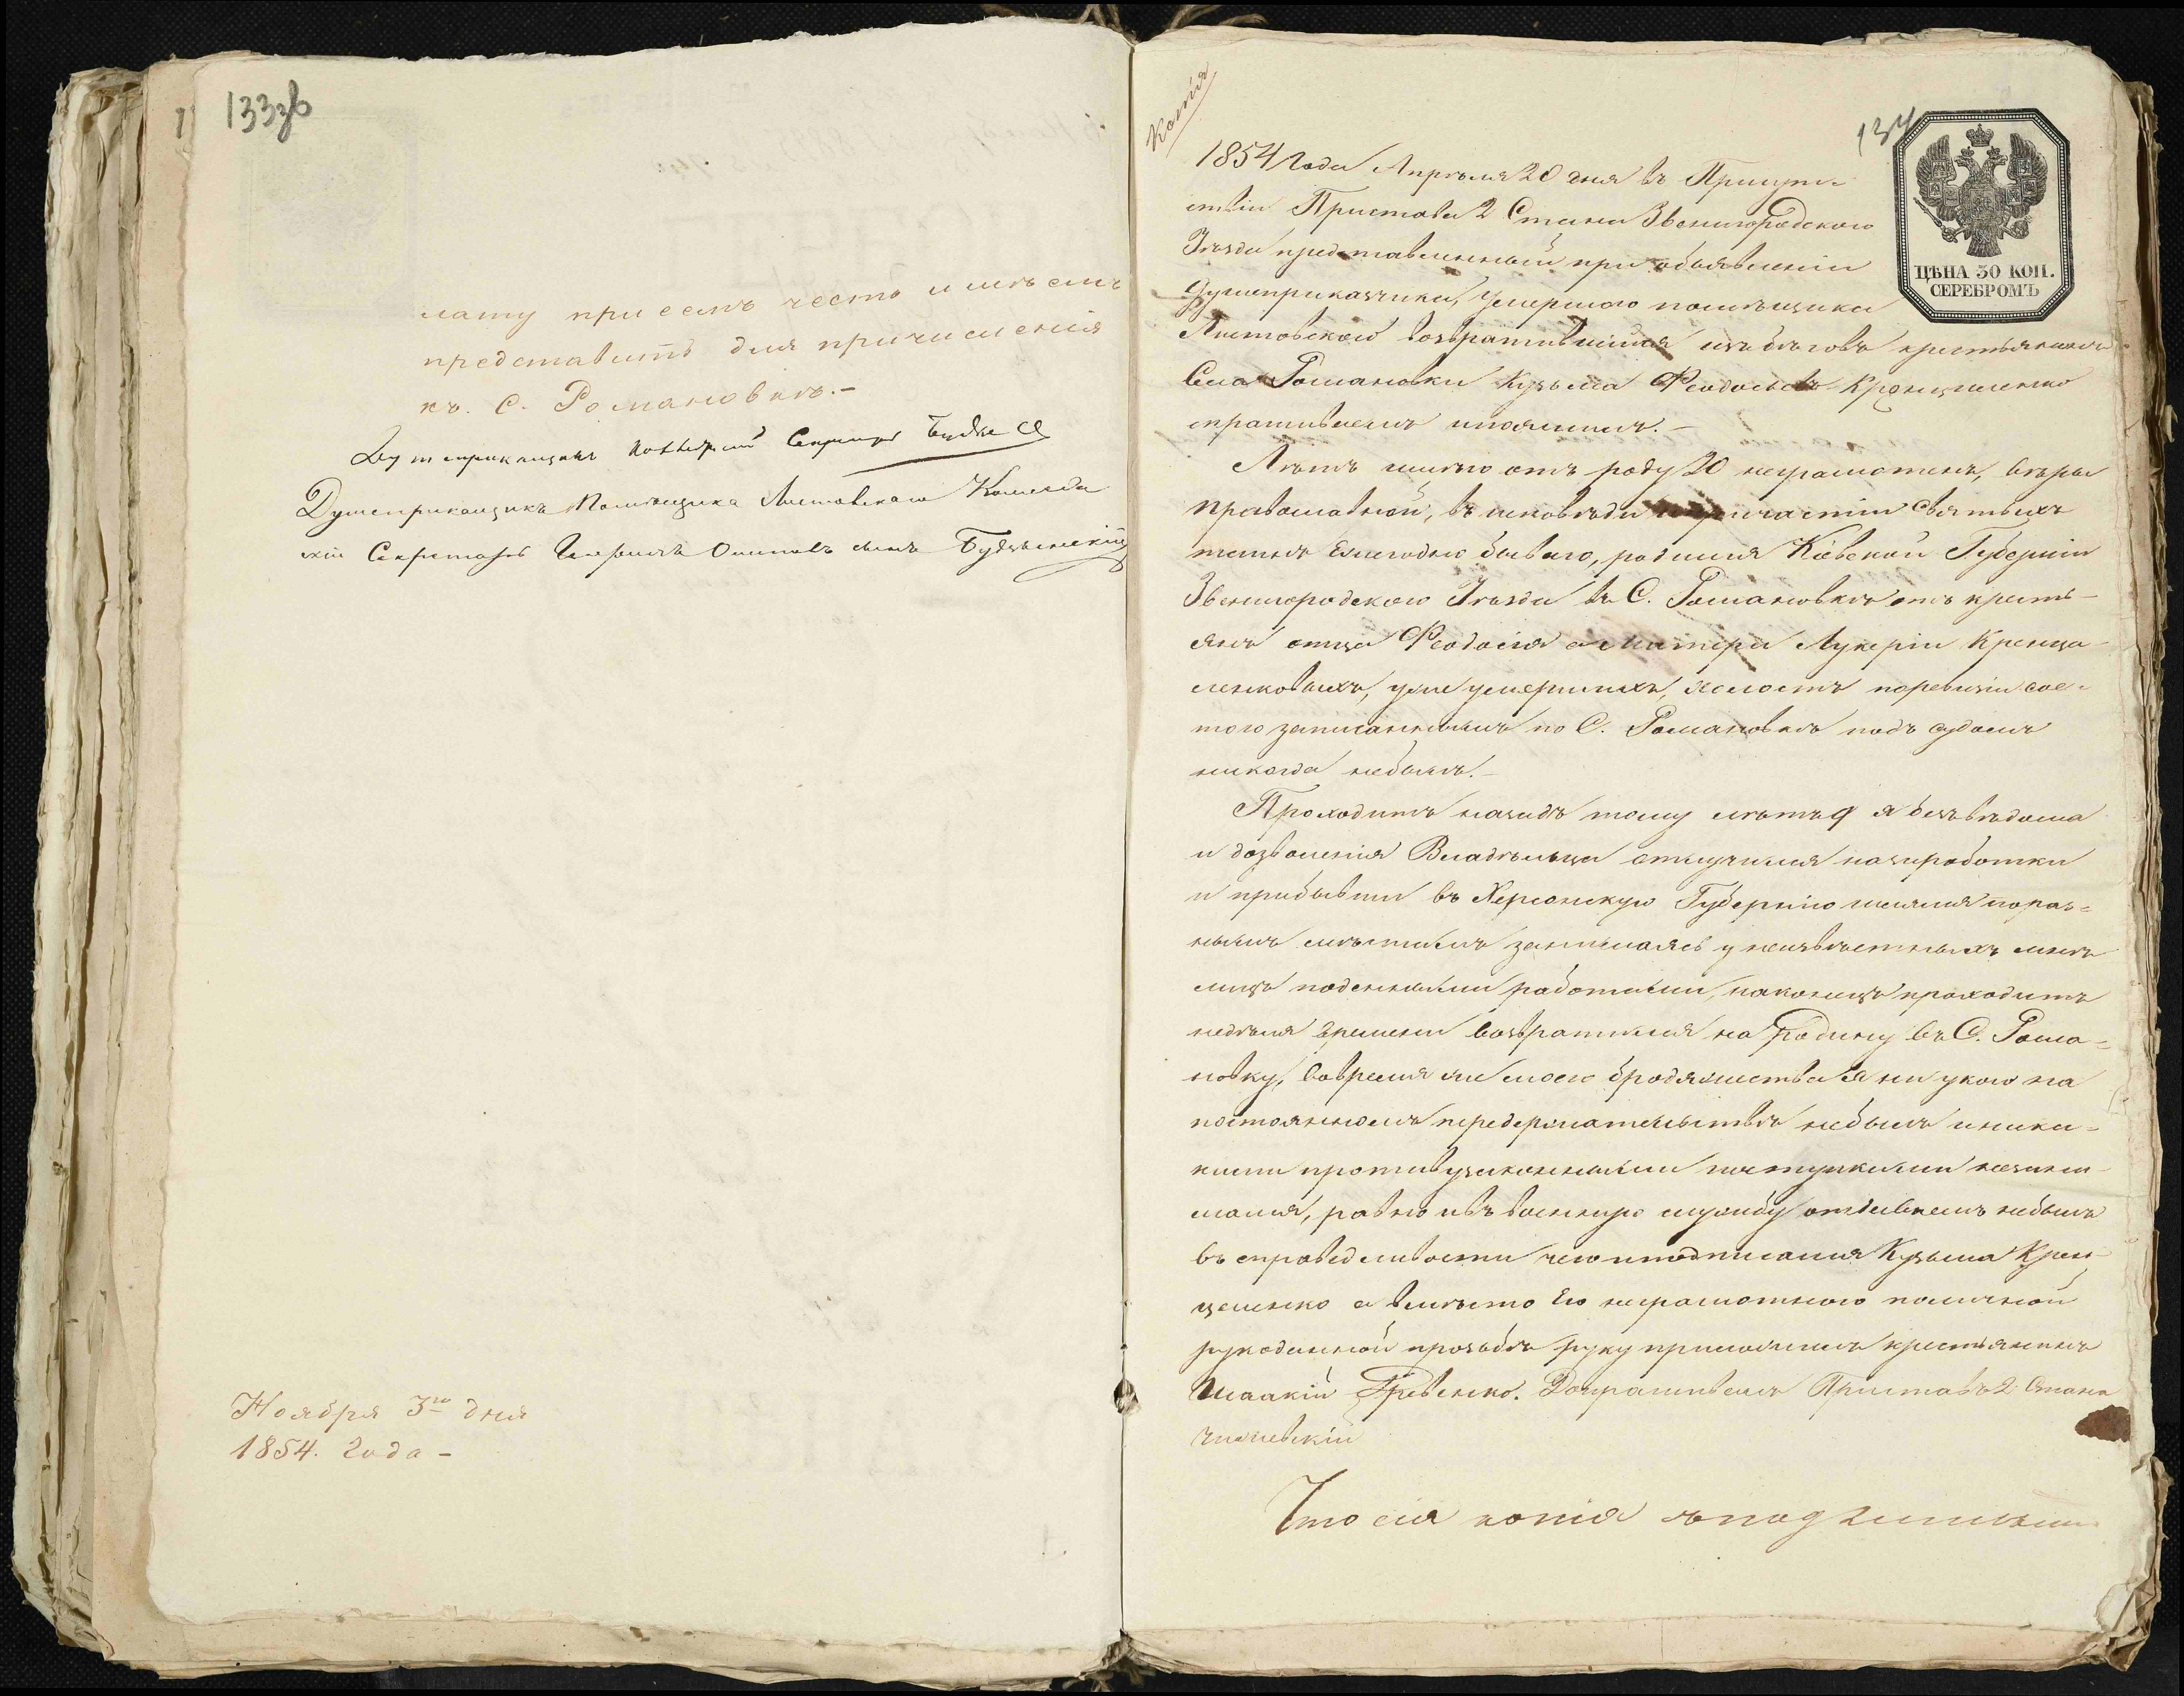 133зв
лату при семъ честь имѣемъ
представить для причисленія
къ С. Романовкѣ.-
Душеприкащикъ Секретарь
Душеприкащикъ Помѣщика Листовскаго Коллежс
кій Секретарь Осиповъ сынъ
Ноября 3го дня
1854. Года -
Копія
134
ЦѢНА 30 КОП.
СЕРЕБРОМЪ
1854 Года Апрѣля 20 дня въ Присут-
ствіи Пристава 2 Стана Звенигородскаго
Уѣзда представленный при объявленіи
Душеприказчика, умершаго помѣщика
Листовскаго возвратившійся изъ бѣговъ крестьянинъ
Села Романовки Кузьма Феодосьевъ
спрашиванъ и показалъ.-
Лѣтъ имѣю отъ роду 20 неграмотенъ, вѣры
православной, въ исповѣди и причастіи Святыхъ
таинъ Ежегодно бываю, родился Кіевской Губерніи
Звенигородскаго Уѣзда въ С. Романовкѣ отъ кресть-
янъ отца Феодосія а Матери Лукеріи Кренца-
ленковыхъ, уже умершихъ, холостъ поревизіи сос-
тою записаннымъ по С. Романовкѣ подъ судомъ
никогда небылъ.-
Проходитъ назадъ тому лѣтъ 9 я безъ вѣдома
и дозволенія Владѣльца отлучился назаработки
и прибывши въ Херсонскую Губернію шлялся пораз=
нымъ мѣстамъ занимаясь у неизвѣстныхъ мнѣ
лицъ поденными работами, наконецъ проходитъ
недѣля времени возвратился на родину въ С. Рома=
новку, вовремя же моего бродяжества я ни укого на
постоянномъ передержательствѣ небылъ иника=
кими противузаконными поступками незани-
мался, равно ивъ военную службу отдаваемъ небылъ
въ справедливости чего иподписался Кузьма Крен-
целенко а вмѣсто Его неграмотнаго поличной
рукоданной прозьбѣ руку приложилъ крестьянинъ
Исаакій Гребенко. Допрашивалъ Приставъ 2 Стана
Что сія копія съподлиннымъ